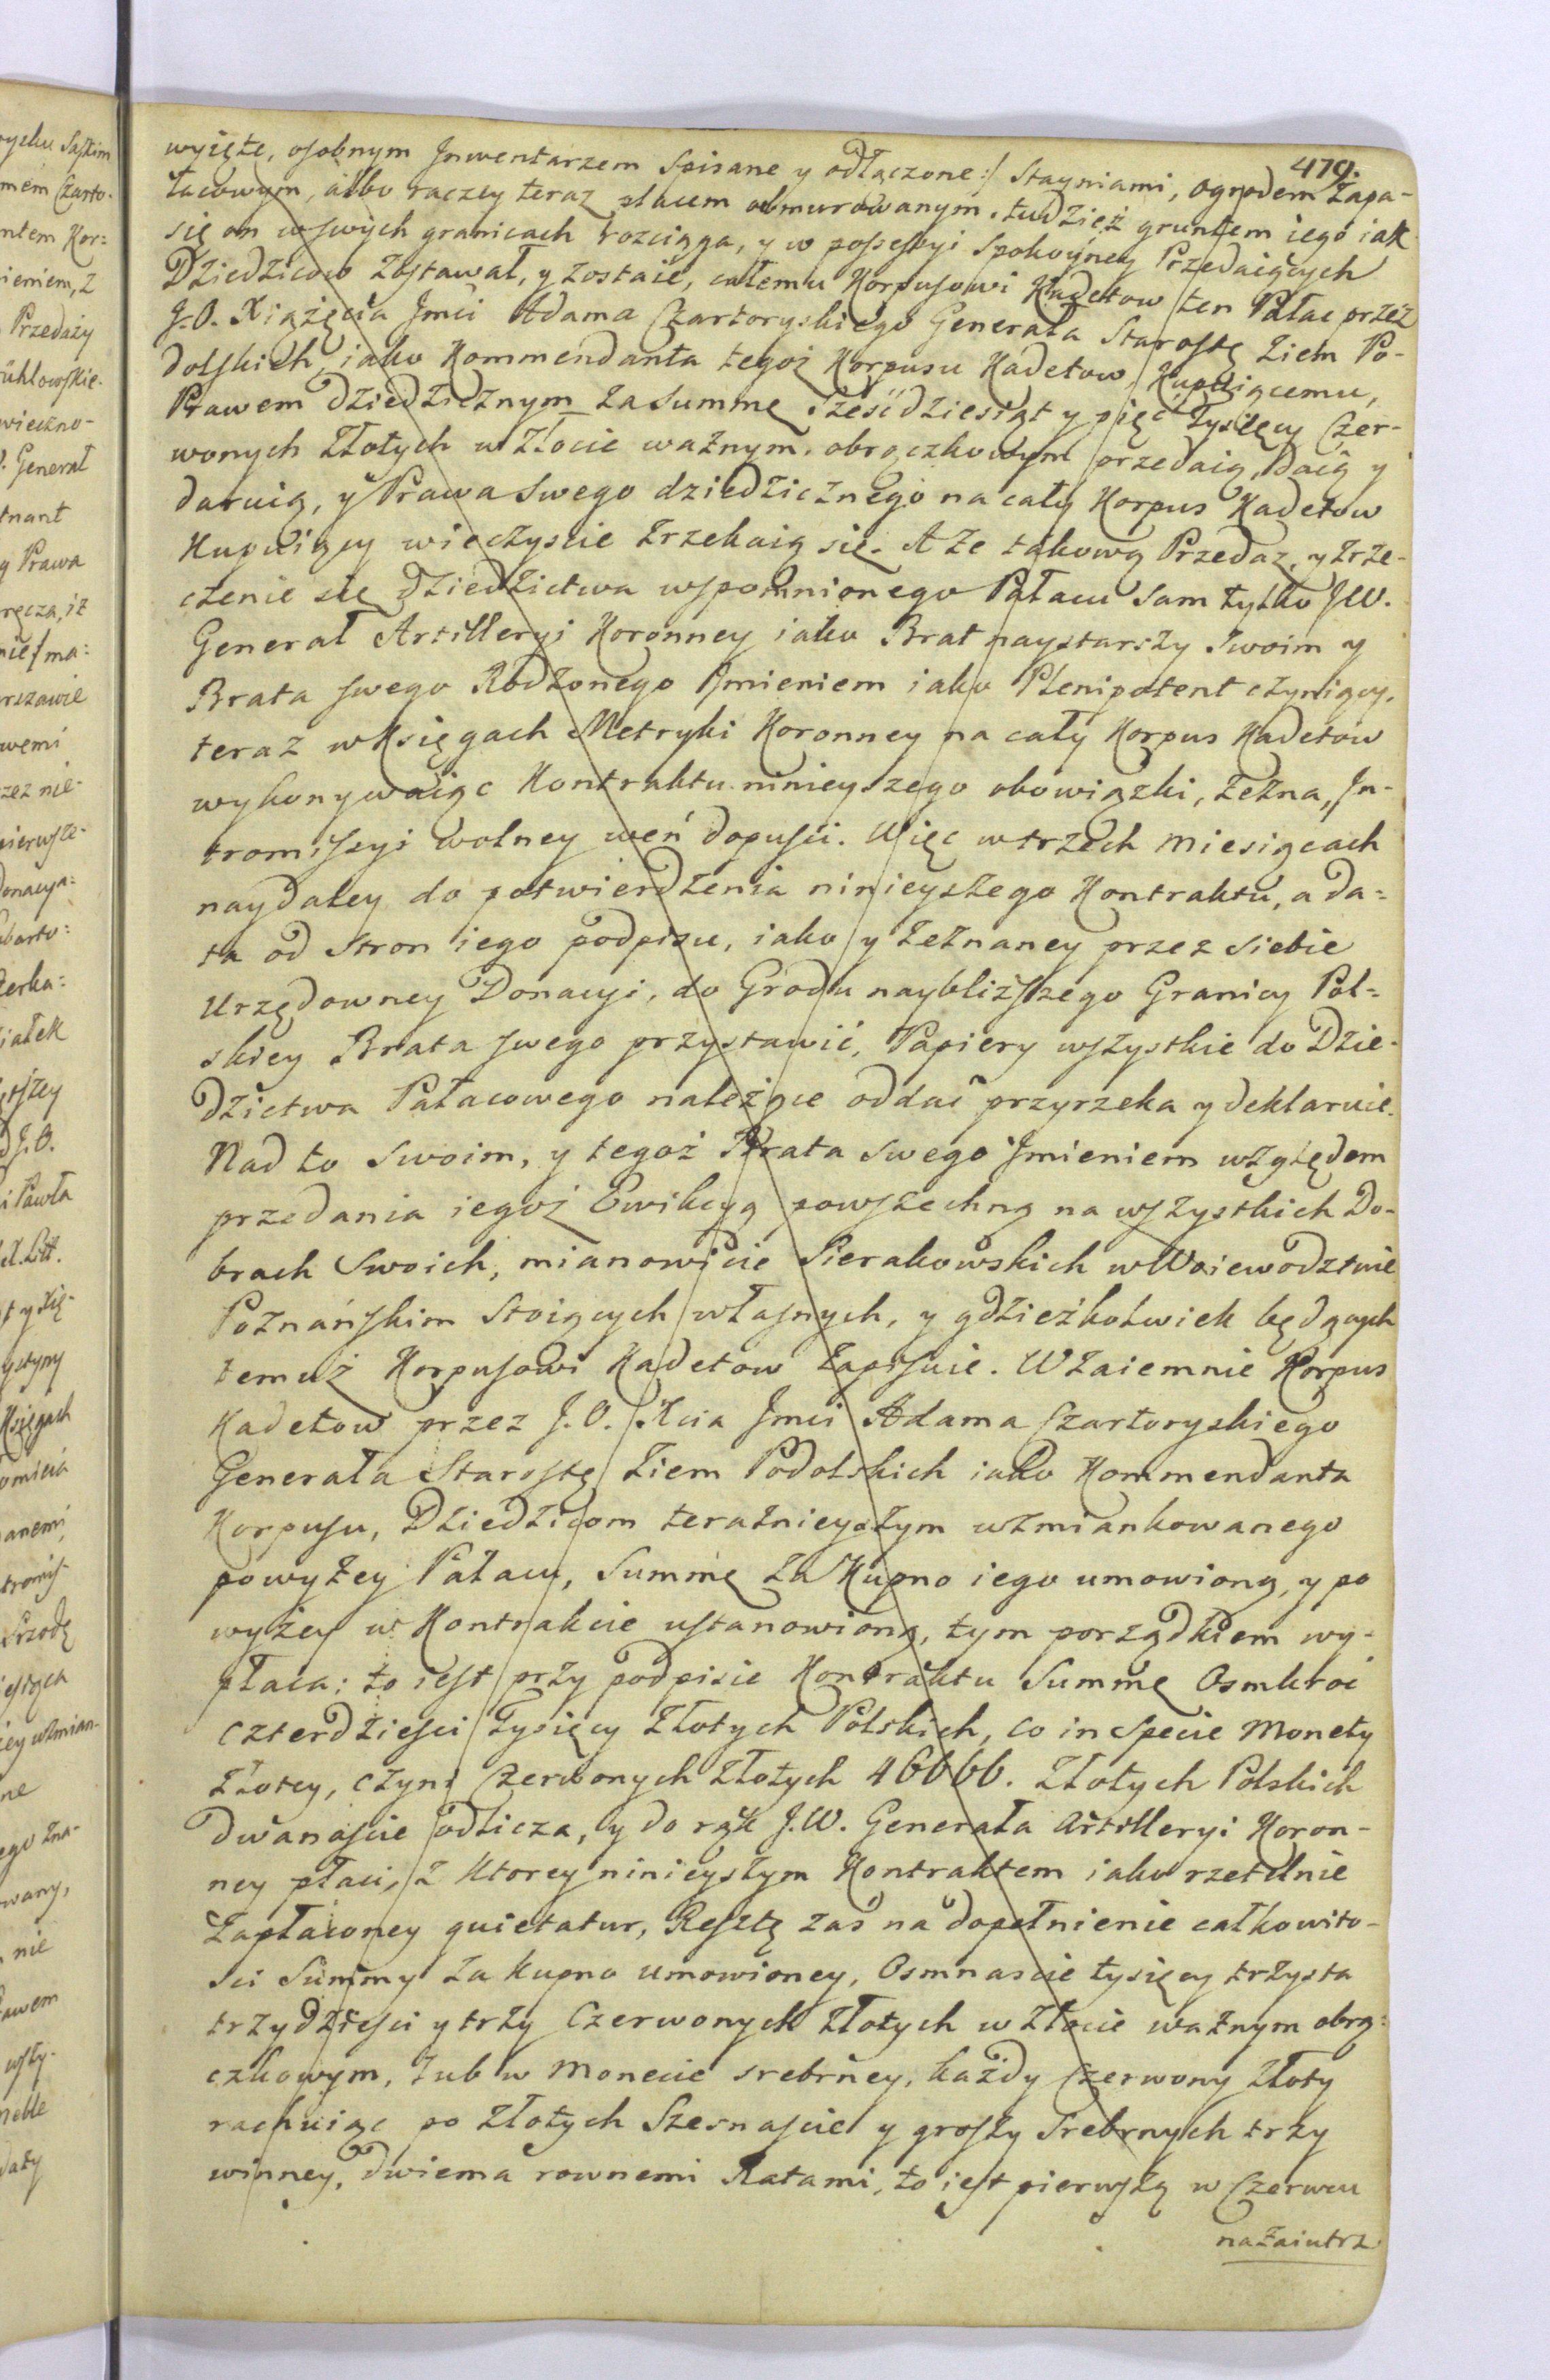 479.
wyięte, osobnym Jnwentarzem Spisane y odłączone:/ Stayniami, ogrodem Zapa-
łacowym, albo raczey teraz placem obmurowanym. tudzież gruntem iego iak
się on wswych granicach rozciąga, y w possessyi Spokoyney Przedaiących
Dziedzicow Zostawał, y zostaie, całemu Korpusowi Kadetow /ten Pałac przez
J.O. Xiążęcia Jmci Adama Czartoryskiego Generała Starostę Ziem Po-
dolskich, iako Kommendanta tegoż Korpusu Kadetow/ Kupuiącemu,
Prawem dziedzicznym za Summę sześćdziesiąt y pięć Tysięcy Czer-
wonych Złotych w Złocie ważnym, obrączkowym przedaią, Daią y
daruią, y Prawa Swego dziedzicznego na cały Korpus Kadetow
Kupuiący wieczyscie Zrzekaią się. A Ze takową Przedaz, y Zrze-
czenie się Dziedzictwa wspomnionego Pałacu Sam tylko JW.
Generał Artilleryi Koronney iako Brat naystarszy Swoim y
Brata swego Rodzonego Jmieniem iako Plenipotent czyniący,
teraz wKsięgach Metryki Koronney na cały Korpus Kadetow
wykonywaiąc Kontraktu ninieyszego obowiązki, Zezna, Jn-
tromissyi wolney weń dopusci. Więc wtrzech miesiącach
naydaley do potwierdzenia ninieyszego Kontraktu, a da=
ta od Stron iego podpisu, iako y Zeznaney przez siebie
Urzędowney Donacyi, do Grodu naybliższego Granicy Pol=
skiey Brata swego przystawić, Papiery wszystkie do Dzie-
dzictwa Pałacowego należące oddać przyrzeka y deklaruie.
Nad to Swoim, y tegoż Brata swego Jmieniem względem
przedania iegoż Ewikcyą powszechną na wszystkich Do-
brach Swoich, mianowicie Sierakowskich wWoiewodztwie
Poznańskim Stoiących własnych, y gdzieżkolwiek będących
temuż Korpusowi Kadetow Zapisuie. WZaiemnie Korpus
Kadetow przez J.O. Xcia Jmci Adama Czartoryskiego
Generała Starostę Ziem Podolskich iako Kommendanta
Korpusu, Dziedzicom teraznieyszym wzmiankowanego
powyżey Pałacu, Summę za Kupno iego umowioną, y po
wyżey w Kontrakcie ustanowioną, tym porządkiem wy-
płaca: to iest przy podpisie Kontraktu Summę Osmkroć
czterdziesci Tysięcy Złotych Polskich, co in Specie Monety
złotey, czyni Czerwonych Złotych 46666. Złotych Polskich
dwanascie odlicza, y do rąk J.W. Generała Artilleryi Koron-
ney płaci, z Ktorey ninieyszym Kontraktem iako rzetelnie
Zapłaconey quietatur, Resztę zaś na dopełnienie całkowito-
sci Summy za kupno umowioney, Osmnascie tysięcy trzysta
trzydziesci y trzy Czerwonych Złotych w Złocie ważnym obrą=
czkowym, lub w Monecie srebrney, każdy Czerwony Złoty
rachuiąc po Złotych Szesnascie y groszy Srebrnych trzy
winney, dwiema rownemi Ratami, to iest pierwszą w Czerwcu
nazaiutrz